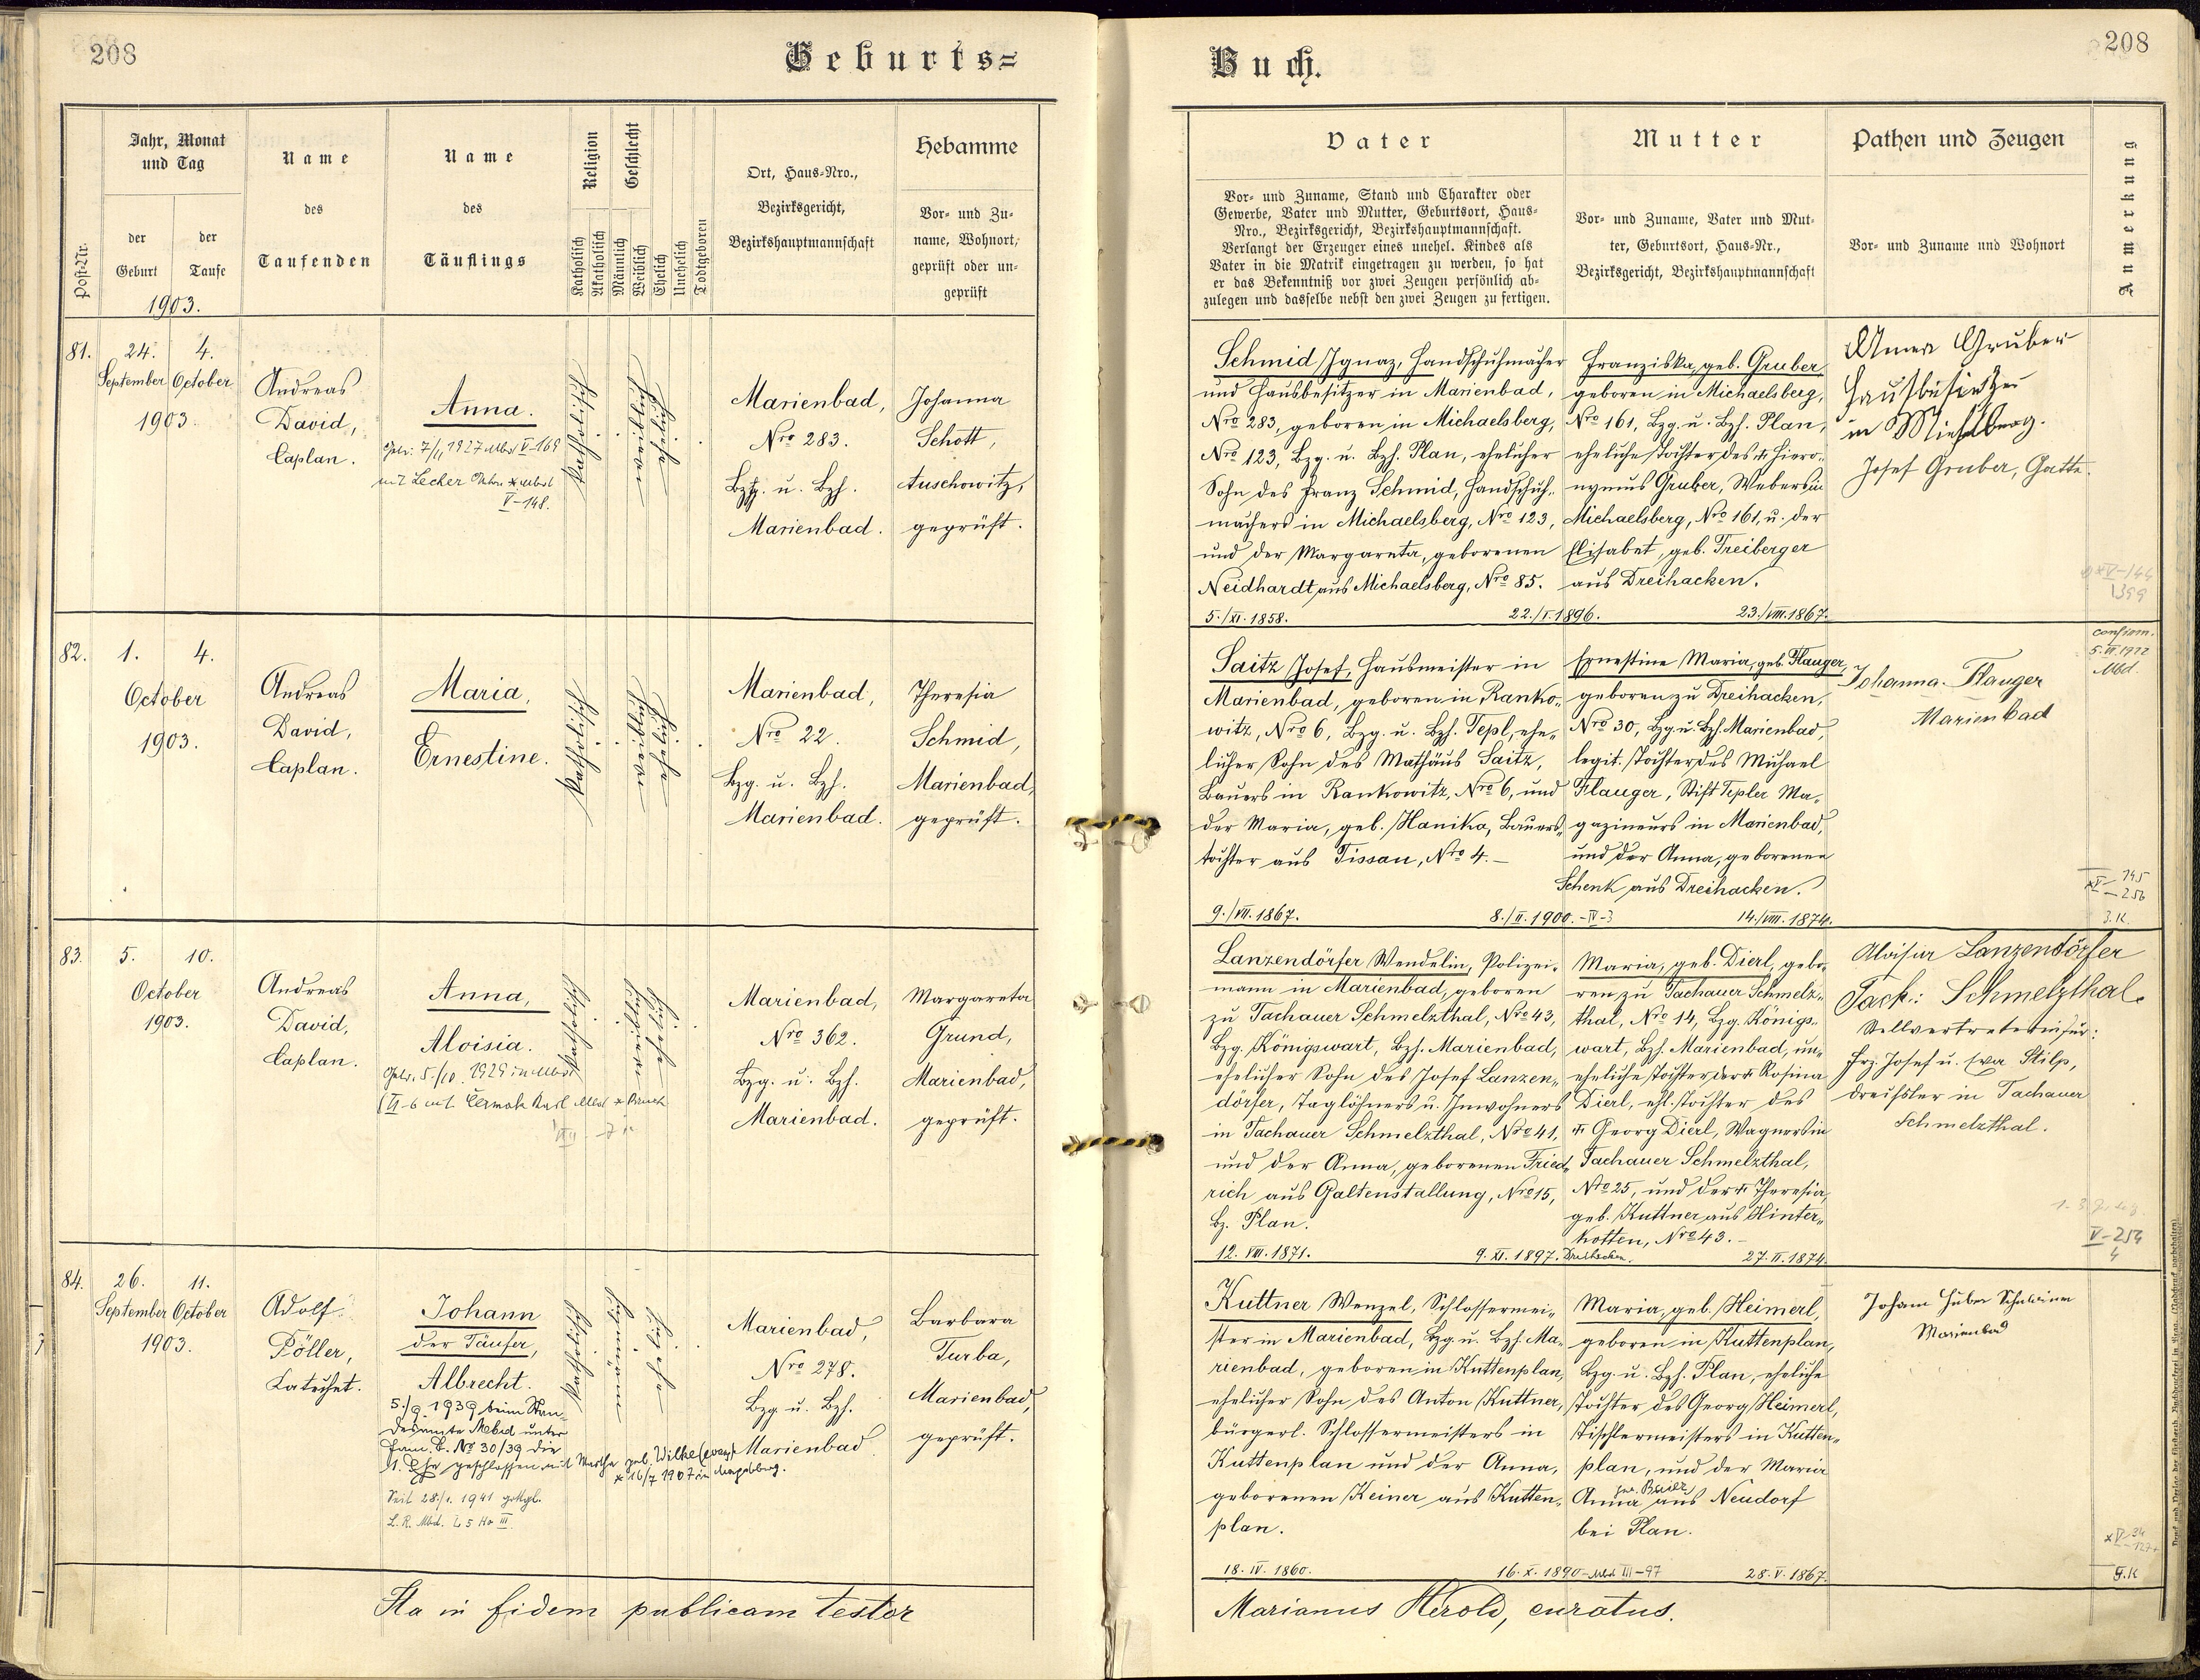 208
Geburts=
Jahr, Monat
und Tag
Name
des
Taufenden
Name
des
Täuflings
Religion
Geschlecht
Ort, Haus-Nro.,
Bezirksgericht,
Bezirkshauptmannschaft
Hebamme
Vor- und Zu-
name, Wohnort,
geprüft oder un-
geprüft
Post-Nr.
der
Geburt
der
Taufe
1903.
Katholisch
Akatholisch
Männlich
Weiblich
Ehelich
Unehelich
Todtgeboren
81.
24.
September
4.
October
1903.
Andreas
David,
Caplan.
Anna.
V-148.
Katholisch
Marienbad,
Nro 283.
Bzg. u. Bzh.
Marienbad.
Johanna
Schott,
Auschowitz,
geprüft.
82.
1.
4.
October
1903.
Andreas
David,
Caplan.
Maria,
Ernestine.
Katholisch
Marienbad,
Nro 22.
Bzg. u. Bzh.
Marienbad.
Theresia
Schmid,
Marienbad,
geprüft.
83.
5.
10.
October
1903.
Andreas
David,
Caplan.
Anna,
Aloisia.
Katholisch
Marienbad,
Nro 362.
Bzg. u. Bzh.
Marienbad.
Margareta
Grund,
Marienbad,
geprüft.
84.
26.
September
11.
October
1903.
Adolf
Pöller,
Katechet.
Johann
der Täufer,
Albrecht.
5./9. 1939 beim Stan-
desamte Mbd unter
Fam. b. No 30/39 die
1. Ehe geschlossen mit Martha geb. Wilke (evang)
* 16/7 1907 in Magdeburg.
Seit 28./1. 1941 gottgl.
Katholisch
Marienbad,
Nro 278.
Bzg. u. Bzh.
Marienbad
Barbara
Turba,
Marienbad,
geprüft.
Ita in fidem publicam testor
Buch.
208
Vater
Vor- und Zuname, Stand und Charakter oder
Gewerbe, Vater und Mutter, Geburtsort, Haus-
Nro., Bezirksgericht, Bezirkshauptmannschaft.
Verlangt der Erzeuger eines unehel. Kindes als
Vater in die Matrik eingetragen zu werden, so hat
er das Bekenntniß vor zwei Zeugen persönlich ab-
zulegen und dasselbe nebst den zwei Zeugen zu fertigen.
Mutter
Vor- und Zuname, Vater und Mut-
ter, Geburtsort, Haus-Nr.,
Bezirksgericht, Bezirkshauptmannschaft
Pathen und Zeugen
Vor- und Zuname und Wohnort
Anmerkung
Schmid Ignaz, Handschuhmacher
und Hausbesitzer in Marienbad,
Nro 283, geboren in Michaelsberg,
Nro 123, Bzg. u. Bzh. Plan, ehelicher
Sohn des Franz Schmid, Handschuh-
machers in Michaelsberg, Nro 123,
und der Margareta, geborenen
Neidhardt aus Michaelsberg, Nro 85.
5./XI. 1858.
22./I. 1896.
Franziska, geb. Gruber,
geboren in Michaelsberg,
Nro 161, Bzg. u. Bzh. Plan,
eheliche Tochter des † Hiero-
nymus Gruber, Webers in
Michaelsberg, Nro 161, u. der
Elisabet, geb. Treiberger
aus Dreihacken.
23./VIII. 1867.
Anna Gruber
Hausbesitzerin
in Michelsberg.
Josef Gruber, Gatte.
Saitz Josef, Hausmeister in
Marienbad, geboren in Ranko-
witz, Nro 6, Bzg. u. Bzh. Tepl, ehe-
licher Sohn des Mathäus Saitz,
Bauers in Rankowitz, Nro 6, und
der Maria, geb. Hanika, Bauers-
tochter aus Tissau, Nro 4.
9./VII. 1867.
8./II. 1900. - IV-3
Ernestine Maria, geb. Flauger,
geboren zu Dreihacken,
Nro 30, Bzg. u. Bzh. Marienbad,
legit. Tochter des Michael
Flauger, Stift Tepler Ma-
gazineurs in Marienbad,
und der Anna, geborenen
Schenk aus Dreihacken.
14./VIII. 1874.
Johanna Flauger
Marienbad
confirm.
Mbd.
Lanzendörfer Wendelin, Polizei-
mann in Marienbad, geboren
zu Tachauer Schmelzthal, Nro 43,
Bzg. Königswart, Bzh. Marienbad,
ehelicher Sohn des Josef Lanzen-
dörfer, Taglöhners u. Inwohners
in Tachauer Schmelzthal, Nro 41,
und der Anna, geborenen Fried-
rich aus Galtenstallung, Nro 15,
Bz. Plan.
12. VIII. 1871.
9. XI. 1897. Dreihacken.
Maria, geb. Dierl, gebo-
ren zu Tachauer Schmelz-
thal, Nro 14, Bzg. Königs-
wart, Bzh. Marienbad, un-
eheliche Tochter der † Rosina
Dierl, ehl. Tochter des
† Georg Dierl, Wagners in
Tachauer Schmelzthal,
Nro 25, und der † Theresia,
geb. Kuttner aus Hinter-
kotten, Nro 43.
27. II. 1874.
Aloisia Lanzendörfer
Tach: Schmelzthal.
Stellvertreterin für:
Frz. Josef u. Eva Stilp,
in Tachauer
Schmelzthal.
V-254
4
Kuttner Wenzel, Schlossermei-
ster in Marienbad, Bzg. u. Bzh. Ma-
rienbad, geboren in Kuttenplan,
ehelicher Sohn des Anton Kuttner,
bürgerl. Schlossermeisters in
Kuttenplan und der Anna,
geborenen Keiner aus Kutten-
plan.
18. IV. 1860.
16. X. 1890 - Mbd III-97
Maria, geb. Heimerl,
geboren in Kuttenplan,
Bzg. u. Bzh. Plan, eheliche
Tochter des Georg Heimerl,
Tischlermeisters in Kutten-
plan, und der Maria
Anna aus Neudorf
bei Plan.
28. V. 1867.
Johann Huber
Marienbad
Marianus Herold, curatus.